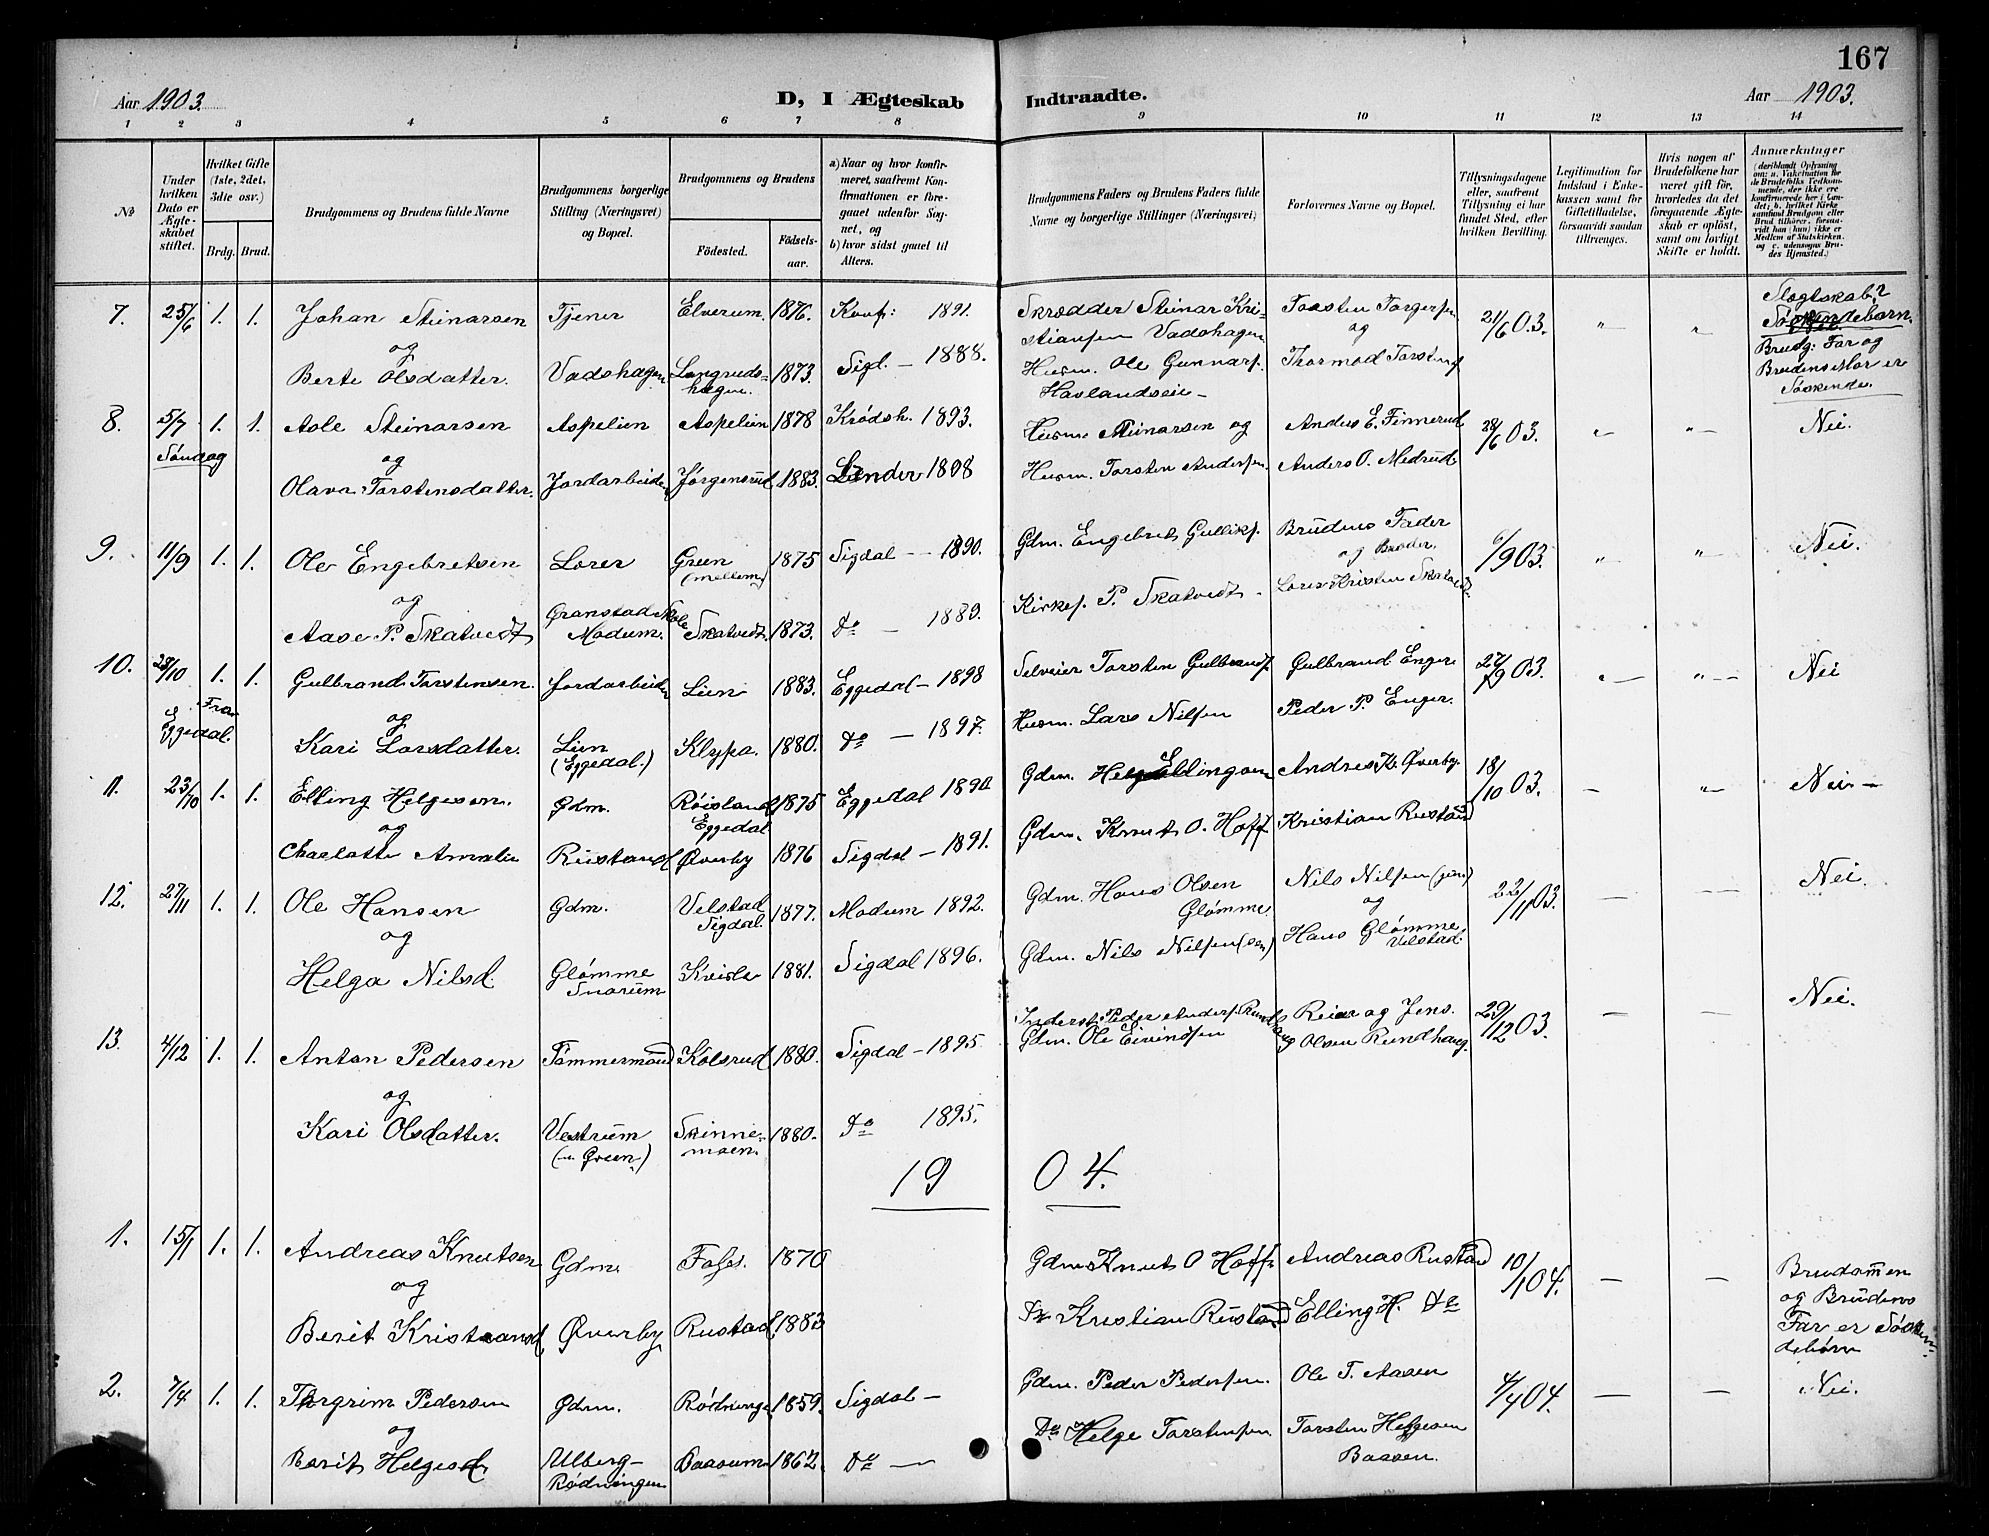 167
Aar 1903.
D, I Ægteskab Indtraadte.
Aar 1903.
1 2 3 4 5 6 7 8 9 10 11 12 13 14
№
Under hvilken Dato er Ægteskabet stiftet.
Hvilket Gifte (1ste, 2det, 3die osv.)
Brdg. Brud.
Brudgommens og Brudens fulde Navne
Brudgommens borgerlige Stilling (Næringsvei) og Bopæl.
Brudgommens og Brudens
Fødested.
Fødsels-aar.
a) Naar og hvor konfirmeret, saafremt Konfirmationen er foregaaet udenfor Sognet, og
b) hvor sidst gaaet til Alters.
Brudgommens Faders og Brudens Faders fulde Navne og borgerlige Stillinger (Næringsvei)
Forlovernes Navne og Bopæl.
Tillysningsdagene eller, saafremt Tillysning ei har fundet Sted, efter hvilken Bevilling.
Legitimation for Indskud i Enkekassen samt for Giftetilladelse, forsaavidt saadan tiltrænges.
Hvis nogen af Brudefolkene har været gift før, hvorledes da det foregaaende Ægteskab er opløst, samt om lovligt Skifte er holdt.
Anmærkninger
7. 25/6 1. 1. Johan Steinarsen Tjener Elverum. 1876. Konf: 1891. Skrædder Steinar Kristiansen Vadshagen Torsten Torgersen 21/6 03. " " Slægtskab?
og
Berte Olsdatter. Vadshagen Langrudshagen 1873. Sigd. – 1888. Husm. Ole Gunnars. Havlandseie – Thormod Torstens.
Brudg: Far og Brudens Mor er Søskende.
8. 5/7 1. 1. Asle Steinarsen Aspelien Aspelien 1878 Krødsh. 1893. Husm. Steinarsen og Anders E. Finnerud 28/6 03. " " Nei.
Søndag
og
Olava Torstensdatter. Jordarbeider Jørgensrud 1883. Lunder 1898 Husm. Torsten Andersen. Anders O. Medrud.
9. 11/9 1. 1. Ole Engebretsen Lærer Green (mellem) 1875 Sigdal – 1890. Gdm. Engebret Gulliks. Brudens Fader og Broder. 6/9 03. " " Nei.
og
Aase P. Skatvedt Granstad Skole Modum. Skatvedt. 1873. do – 1889. Kirkes. P. Skatvedt – Lærer Kristen Skatvedt.
10. 28/10 1. 1. Gulbrand Torstensen. Jordarbeider Lien 1883. Eggedal – 1898 Selveier Torsten Gulbrands. Gulbrand Enger 27/9 03. " " Nei
Fra Eggedal.
og
Kari Larsdatter. Lien (Eggedal.) Klypa. 1880. do – 1897. Husm. Lars Nilsen Peder P. Enger.
11. 23/10 1. 1. Elling Helgesen. Gdm. Røisland Eggedal 1875 Eggedal 1890 Gdm. Helge Ellingsen Andres K. Øverby. 18/10 03. – " Nei –
og
Charlotte Amalie Rustand Øverby 1876 Sigdal – 1891. Gdm. Knut O. Hoff Kristian Rustand
12. 27/11 1. 1. Ole Hansen Gdm. Velstad Sigdal. 1877. Modum 1892. Gdm. Hans Olsen Glømme. Nils Nilsen (jun.) 22/11 03. – – Nei.
og
Helga Nilsd. Glømme Snarum Kvisle 1881. Sigdal 1896. Gdm. Nils Nilsen (sen) og Hans Glømme Velstad.
13. 4/12 1. 1. Anton Pedersen Tømmermand Kolsrud 1880. Sigdal – 1895 Inderst: Peder Anders. Rundhaug Reier og Jens. 29/12 03. – – Nei.
og
Kari Olsdatter. Vestrum (u. Green) Skinnemoen. 1880. do 1895. Gdm. Ole Eivindsen Olsen Rundhaug.
1904.
1. 15/1 1. 1. Andreas Knutsen Gdm. Foss. 1870 Gdm Knut O Hoff Andreas Rustand 10/1 04. – – Brudgommen og Brudens Far er Søskendebørn
og
Berit Kristiansd. Øverby Rustad. 1883 do Kristian Rustand Elling H. do
2. 7/4 1. 1. Thorgrim Pedersen Gdm. Rødninge 1859. Sigdal – Gdm. Peder Pedersen. Ole T. Aasen 4/4 04. – – Nei.
og
Berit Helgesd. Ulberg-Rødningen Baasum 1862. do – do Helge Torstensen Torsten Helgesen Baasen.